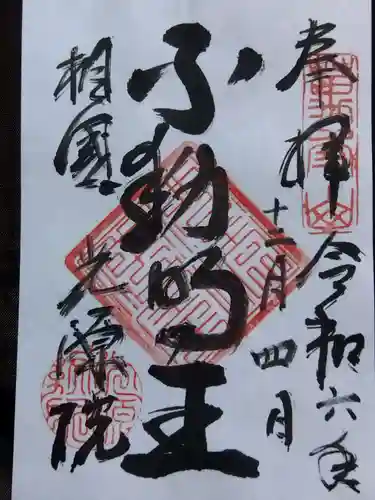 奉拝
令和六年
十二月四月
不動明王
相國寺
光源院